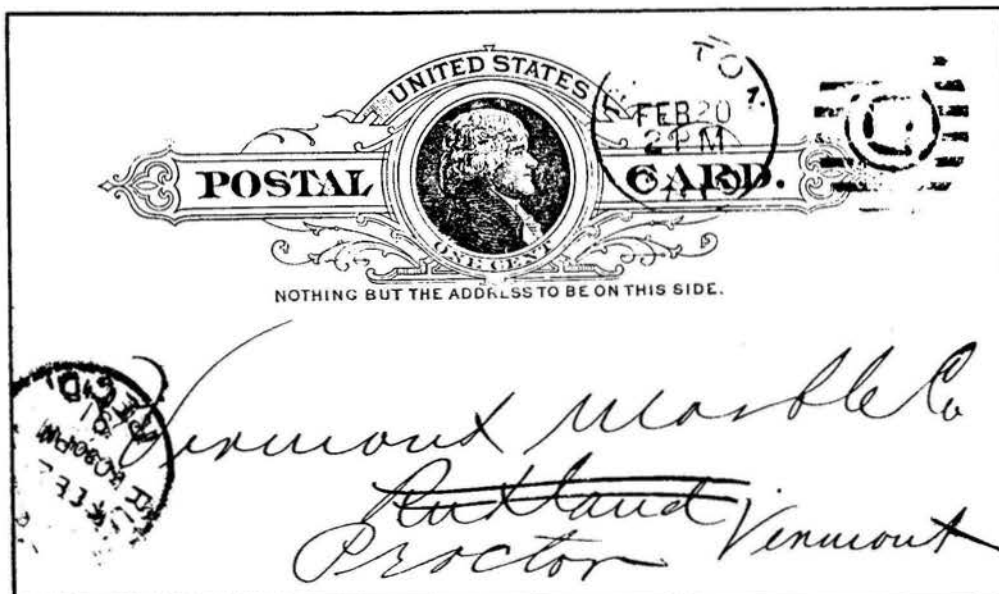 UNITED STATES
POSTAL CARD.
ONE CENT
FEB 20
2 PM
NOTHING BUT THE ADDRESS TO BE ON THIS SIDE.
REC'D.
Vermont Marble Co
Rutland
Proctor Vermont